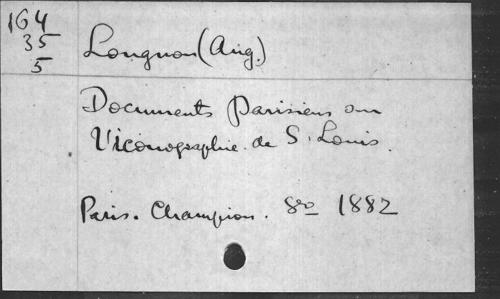 164
35
5
Longnon (Aug.)
Documents parisiens sur
l'iconographie de S. Louis.
Paris. Champion. 8º 1882